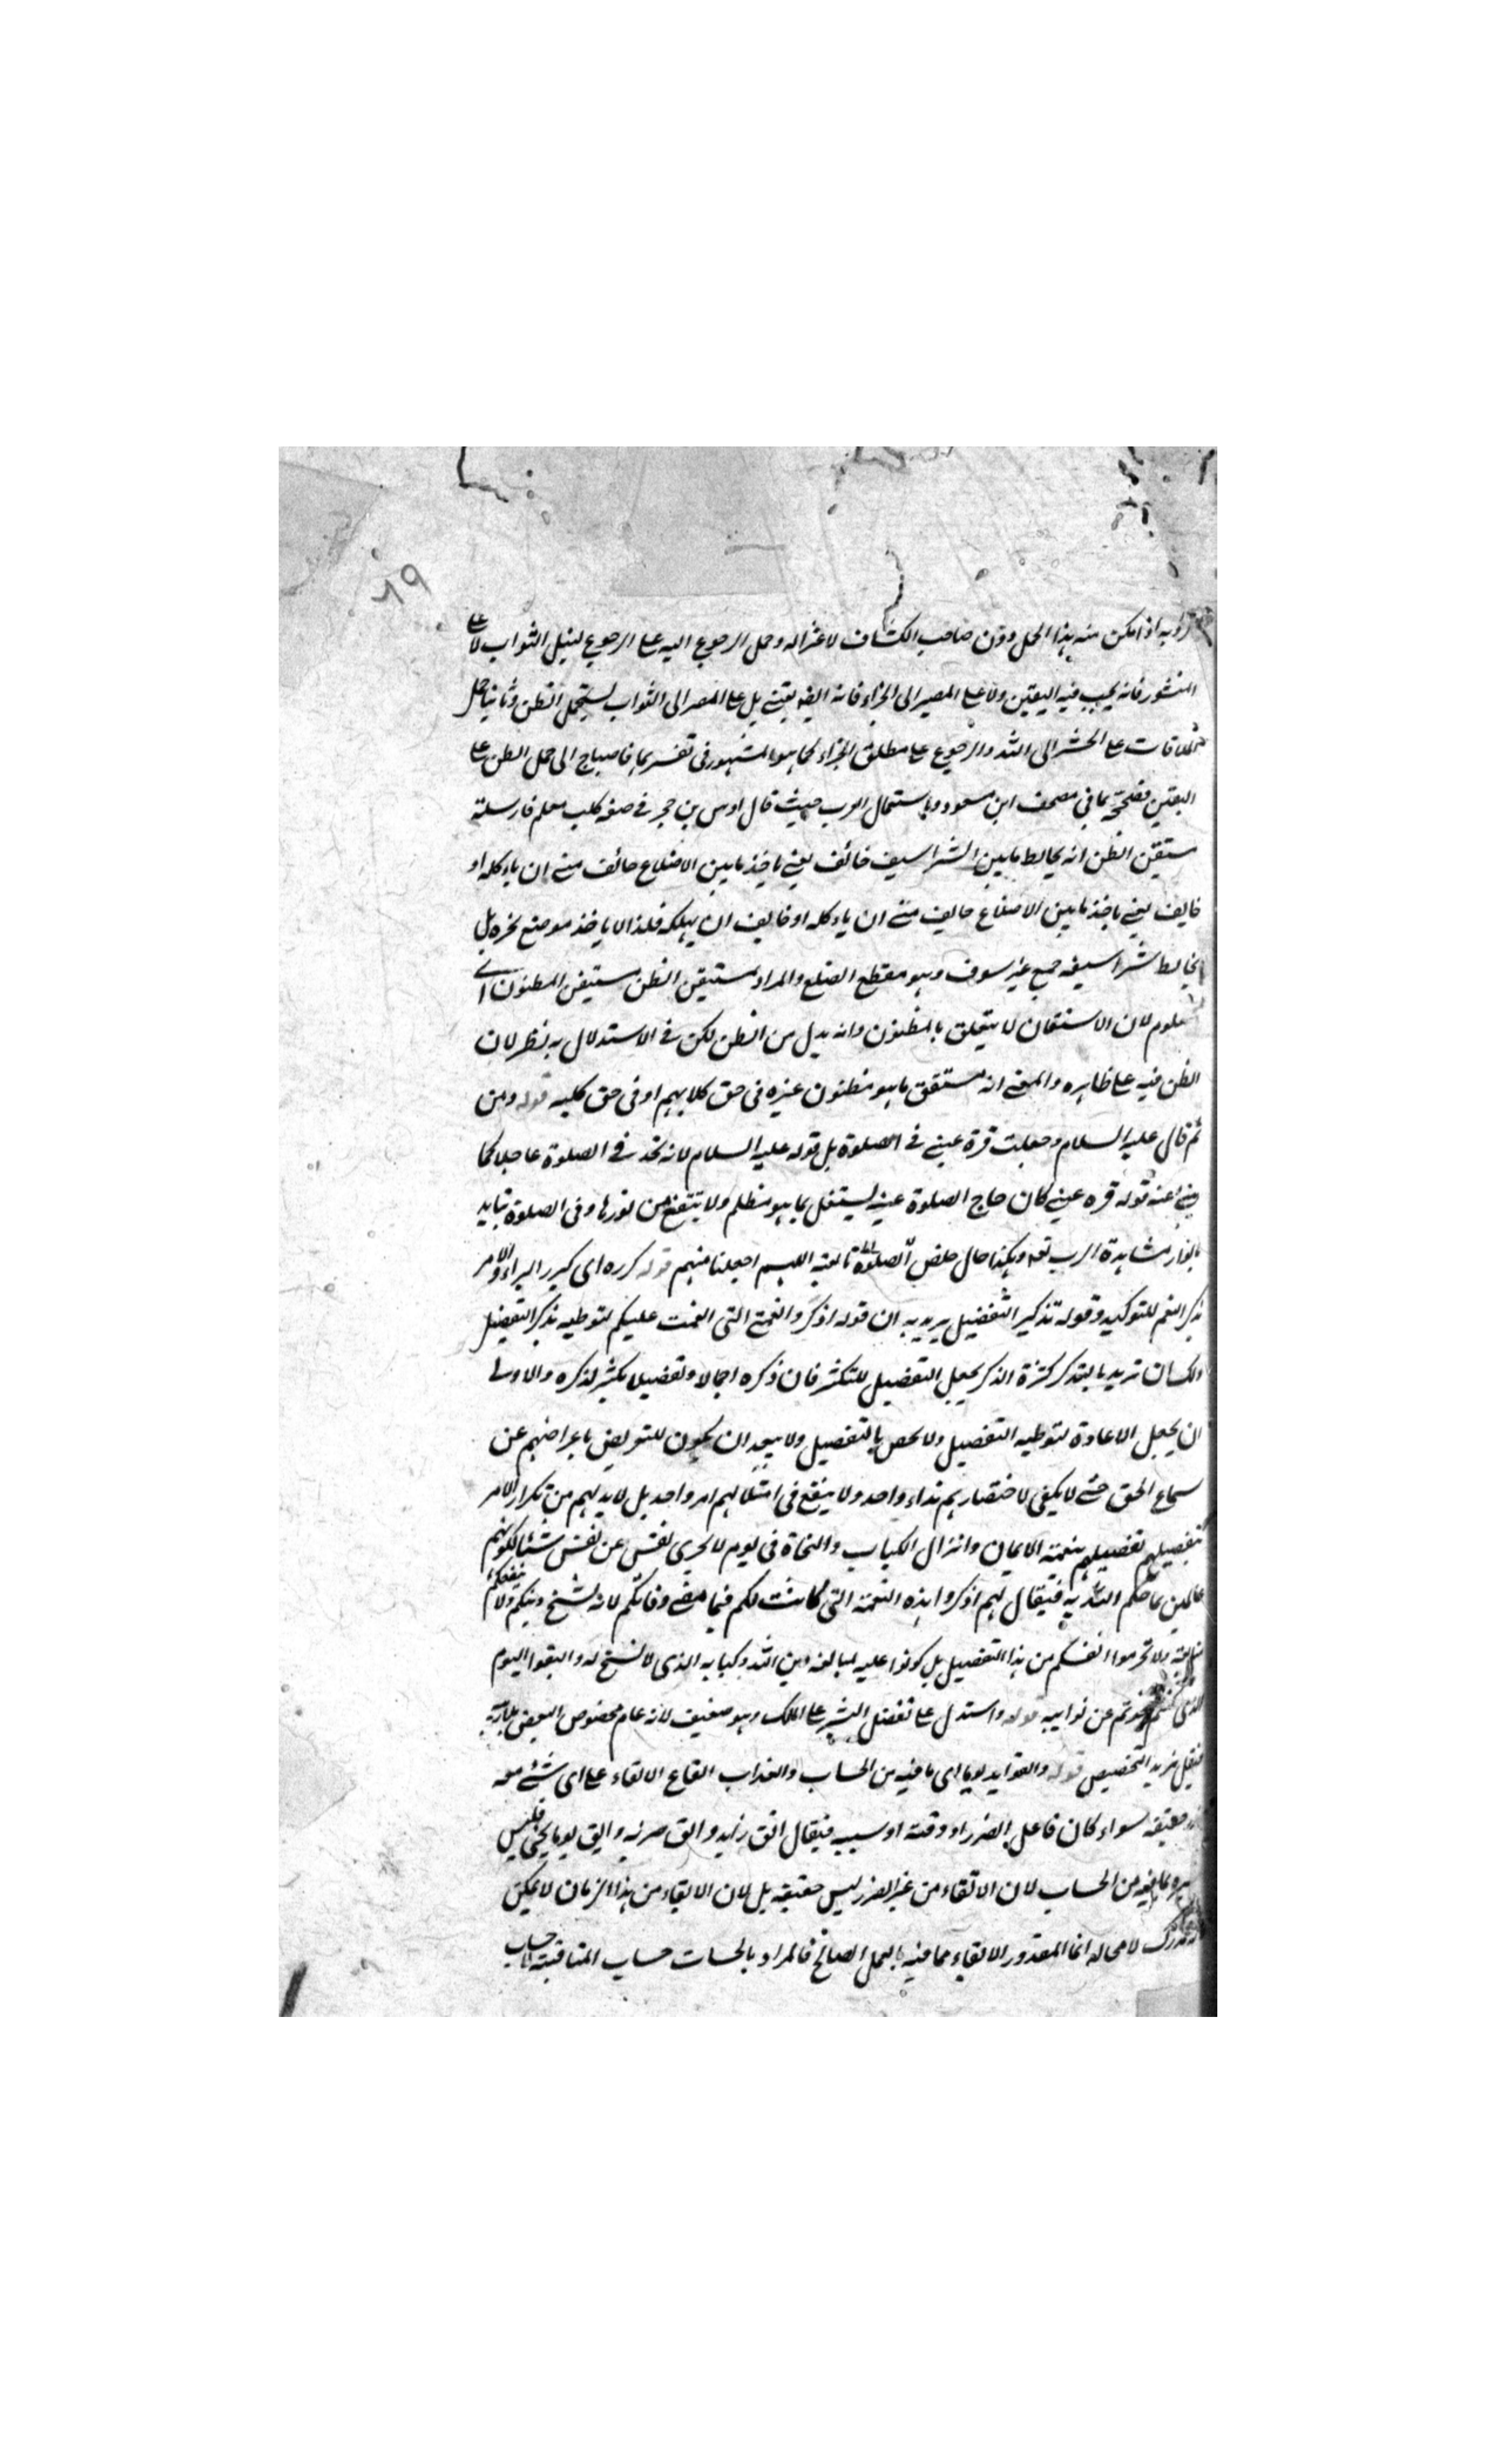 ٨٩
به اذ امكن منه بهذا المحل وون صاحب الكشاف لاعتزاله وحمل الرجوع اليه على الرجوع لنيل الثواب لا على
النشور فانه يجب فيه اليقين ولا على المصير الى الجزاء فانه ايضا يقينى بل على المصير الى الثواب ليستحمل الظن وثانيا حمل
الملاقات على الحشر الى الله والرجوع على مطلق الجزاء كما هو المشهور فى تفسيرهما فاحتاج الى حمل الظن على
اليقين فصححه بما فى مصحف ابن مسعود وباستعمال العرب حيث قال اوس بن حجر فى صفة كلب معلم فارسلته
مستيقن الظن انه يخالط ما بين الشراسيف خائف يعنى ياخذ ما بين الاضلاع خائف منى ان ياء كله او
خايف يعنى ياخذ ما بين الاضلاع خايف منى ان ياء كله او خايف ان يهلكه فلذا لا ياخذ موضع نحره بل
يخالط شراسيفه جمع شرسوف وهو مقطع الضلع والمراد بمستيقن الظن مستيقن المظنون اى
معلوم لان الاستيقان لا يتعلق بالمظنون وانه بدل من الظن لكن فى الاستدلال به نظر لان
الظن فيه على ظاهره والمعنى انه مستيقن ما هو مظنون غيره فى حق كلابهم او فى حق كلبه قوله ومن
ثم قال عليه السلام وجعلت قرة عينى فى الصلوة بل قوله عليه السلام لانه تجد فى الصلوة عاجلا كما
ينبئ عنه قوله قرة عينى كان خارج الصلوة عينه ليشتغل بما هو مظلم ولا ينتفع من نورها وفى الصلوة يتايد
بانوار مشاهدة الرب تعه وهكذا حال خلص الصلوة تابعيه اللهم اجعلنا منهم قوله كرره اى كرر النداء والامر
بذكر النعم للتوكيد وقوله تذكير التفضيل يريد به ان قوله اذكروا نعمتى التى انعمت عليكم لتوطيه بذكر التفضيل
ولك ان تريد بالتذكر كثرة الذكر بجعل التفضيل للتكثير فان ذكره اجمالا وتفصيلا تكثير لذكره والاولى
ان يجعل الاعادة لتوطيه التفضيل ولا يخص بالتفضيل ولا يبعد ان يكون للتعريض باعراضهم عن
سماع الحق حتى لا يكفى لاحتضارهم نداء واحد ولا ينفع فى امتثالهم امر واحد بل لا بد لهم من تكرار الامر
تفضيلهم بنعمة الايمان وانزال الكتاب والنجاة فى يوم لا تجزى نفس عن نفس شيئا لكونهم
عالمين بما حكم الله به فيقال لهم اذكروا هذه النعمة التى كانت لكم فيما مضى وفاتكم لانه نسخ دينكم ولا ينفعكم
ولا تحرموا انفسكم من هذا التفضيل بل كونوا عليه لمبالغة دين الله وكتابه الذى لا نسخ له واتقوا اليوم
الذى عن نوابيه قوله واستدل على تفضل البشر على الملك وهو ضعيف لانه عام مخصوص البعض
مزيد التخصيص قوله واتقوا يوما اى ما فيه من الحساب والعذاب ايقاع الاتقاء على اى شئ معه
حقيقة سواء كان فاعل الضرر او وقته او سببه فيقال اتق زيد واتق ضربه واتق يوما يجئ فليس
بما فيه من الحساب لان الاتقاء من غير الضرر ليس حقيقة بل لان الاتقاء من هذا الزمان لا يمكن
لا محالة انما المقدور الاتقاء مما فيه بالعمل الصالح فالمراد بالحساب حساب المناقشة